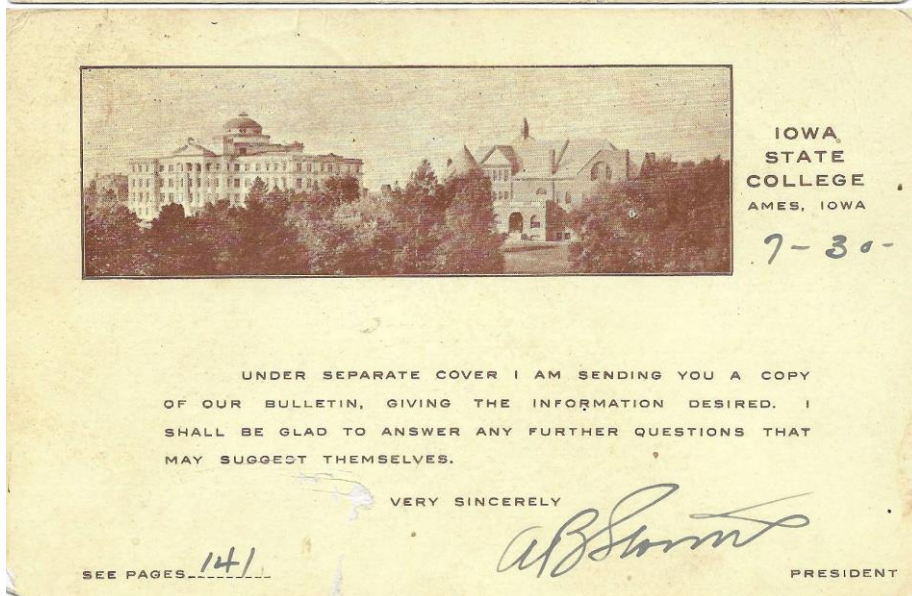 IOWA
STATE
COLLEGE
AMES, IOWA
7-30-
UNDER SEPARATE COVER I AM SENDING YOU A COPY
OF OUR BULLETIN, GIVING THE INFORMATION DESIRED. I
SHALL BE GLAD TO ANSWER ANY FURTHER QUESTIONS THAT
MAY SUGGEST THEMSELVES.
VERY SINCERELY
AB Storms
SEE PAGES 141
PRESIDENT